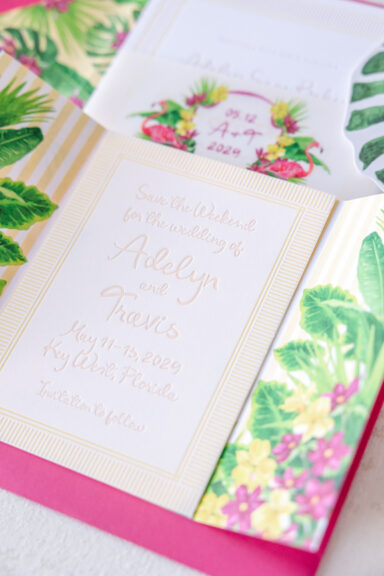 05.12
A + T
2029
Save the Weekend
for the wedding of
Adelyn
and
Travis
May 11-13, 2029
Key West, Florida
Invitation to follow